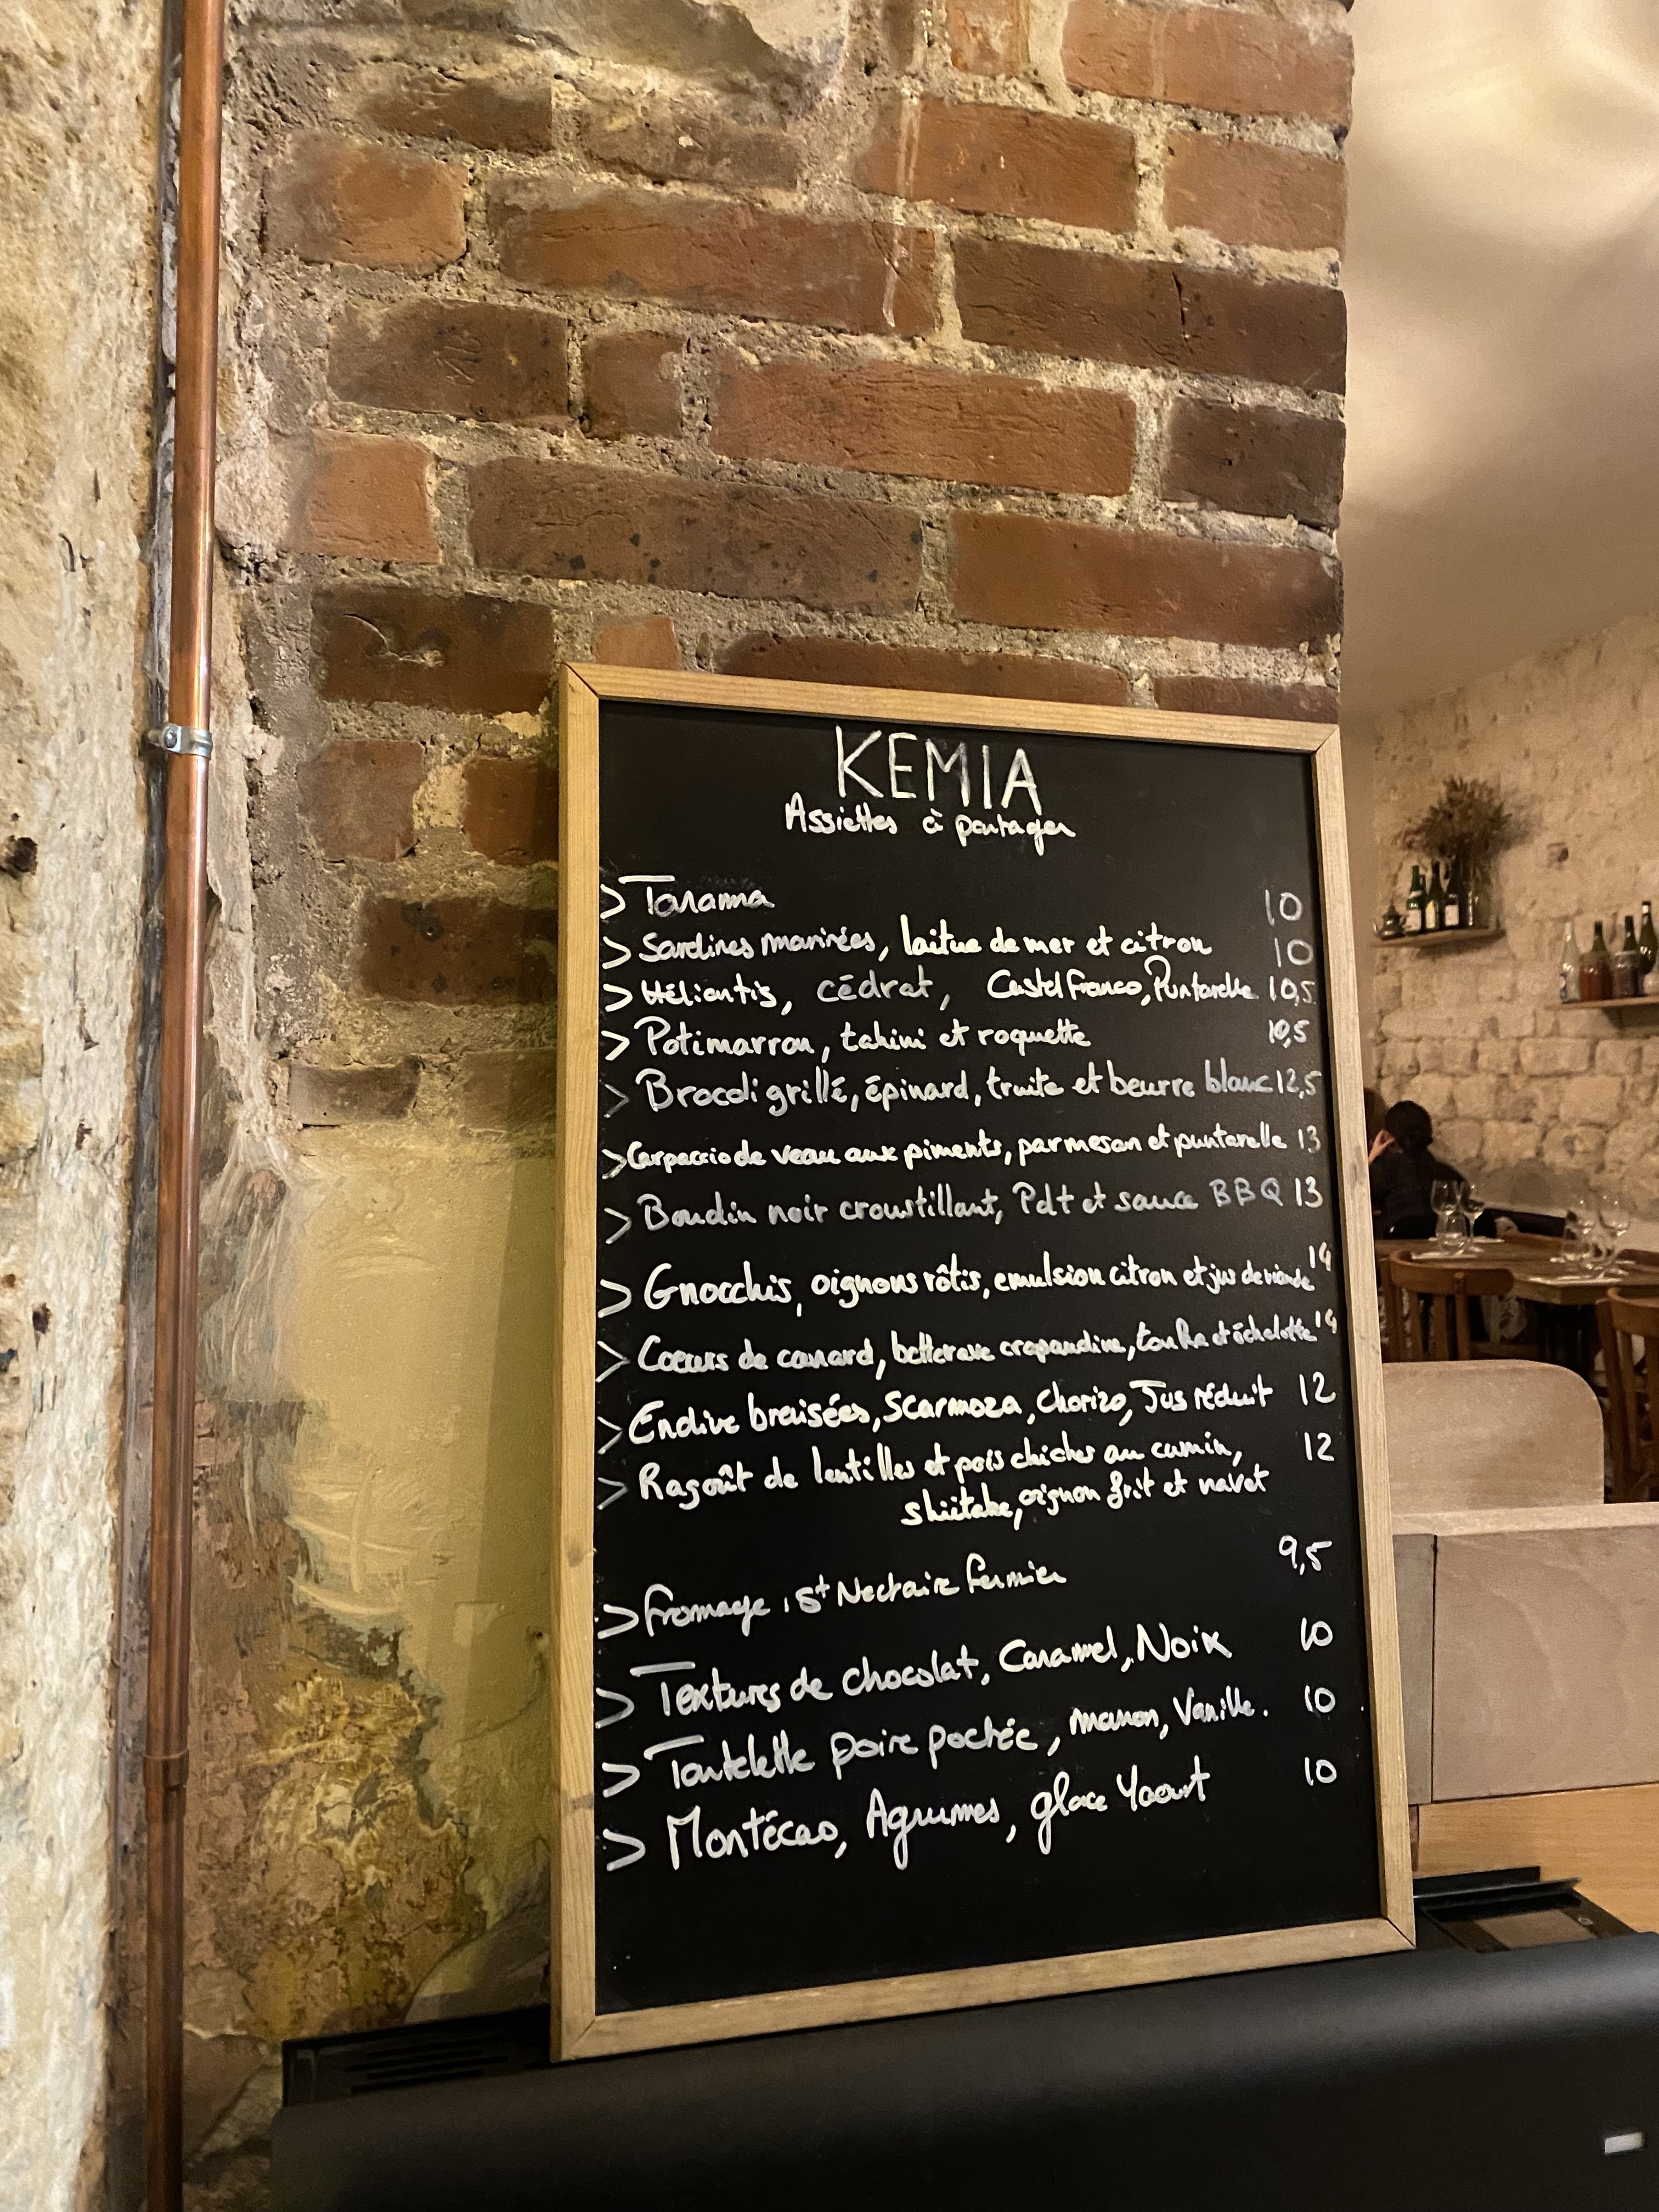 KEMIA
Assiettes à partager
> Tarama 10
> Sardines marinées, laitue de mer et citron 10
> Héliantis, cédrat, Castelfranco, Puntarelle 10,5
> Potimarron, tahini et roquette 10,5
> Brocoli grillé, épinard, truite et beurre blanc 12,5
> Carpaccio de veau aux piments, parmesan et puntarelle 13
> Boudin noir croustillant, Pdt et sauce BBQ 13
> Gnocchis, oignons rôtis, emulsion citron et jus de viande 14
> Coeurs de canard, betterave crapaudine, et échalotte 14
> Endive braisées, Scarmoza, Chorizo, Jus réduit 12
> Ragoût de lentilles et pois chiches au cumin, 12
shiitake, oignon frit et navet
> Fromage, St Nectaire fermier 9,5
> Textures de chocolat, Caramel, Noix 10
> Tartelette poire pochée, marron, Vanille. 10
> Montécao, Agrumes, glace Yaourt 10